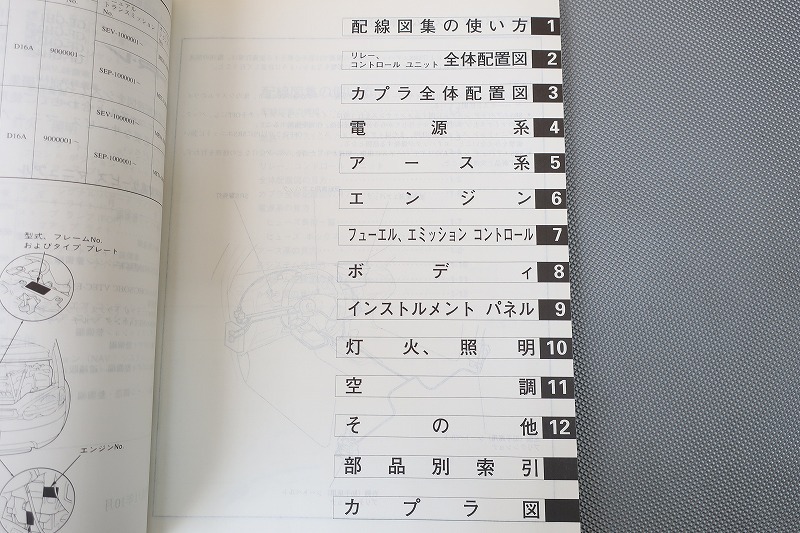 トランスミッション
No.
D16A
9000001~
SEV-1000001~
SEP-1000001~
D16A
9000001~
SEV-1000001~
SEP-1000001~
型式、フレームNo.
およびタイプ プレート
エンジンNo.
配線図集の使い方 1
リレー、
コントロール ユニット 全体配置図 2
カプラ全体配置図 3
電源系 4
アース系 5
エンジン 6
フューエル、エミッション コントロール 7
ボディ 8
インストルメント パネル 9
灯火、照明 10
空調 11
その他 12
部品別索引
カプラ図